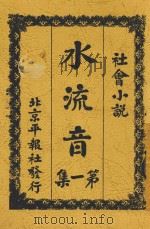 社會小說
水流音
第一集
北京平報社發行
www.toowiki.com